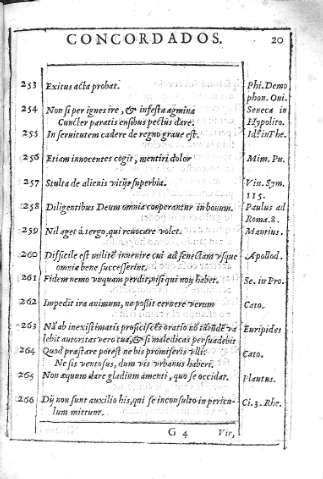 CONCORDADOS. 20
253 Exitus acta probat. Phi. Demo
phon. Oui.
254 Non si per ignes ire, & infesta agmina Seneca in
Cuncter paratis ensibus pectus dare. Hypolito.
255 In seruitutem cadere de regno graue est. Idẽ in The.
256 Etiam innocentes cogit, mentiri dolor Mim. Pu.
257 Stulta de alienis vitijs superbia. Vin. Sym.
115.
258 Diligentibus Deum omnia cooperantur in bonum. Paulus ad
Roma. 8.
259 Nil aget à tergo, qui reuocare volet.
260 Difficile est inuenire cui ad senectam vsque Apollod.
omnia bene succeſſerint.
261 Fidem nemo vnquam perdit, nisi qui non habet. Se. in Pro.
262 Impedit ira animum, ne poſſit cernere verum Cato.
263 Nã ab inexistimatis oratio va Euripides
lebit autoritas vero tua, & si maledicat persuadebit
264 Quod præstare potest ne bis promiseris vlli: Cato.
Ne sis ventosus, dum vis vrbanus haberi.
265 Non æquom dare gladium amenti, quo se occidat. Plautus.
266 Dij non sunt auxilio his, qui se inconsulto in pericu- Ci. 3. Rhe.
lum mittunt.
G 4 Vir,